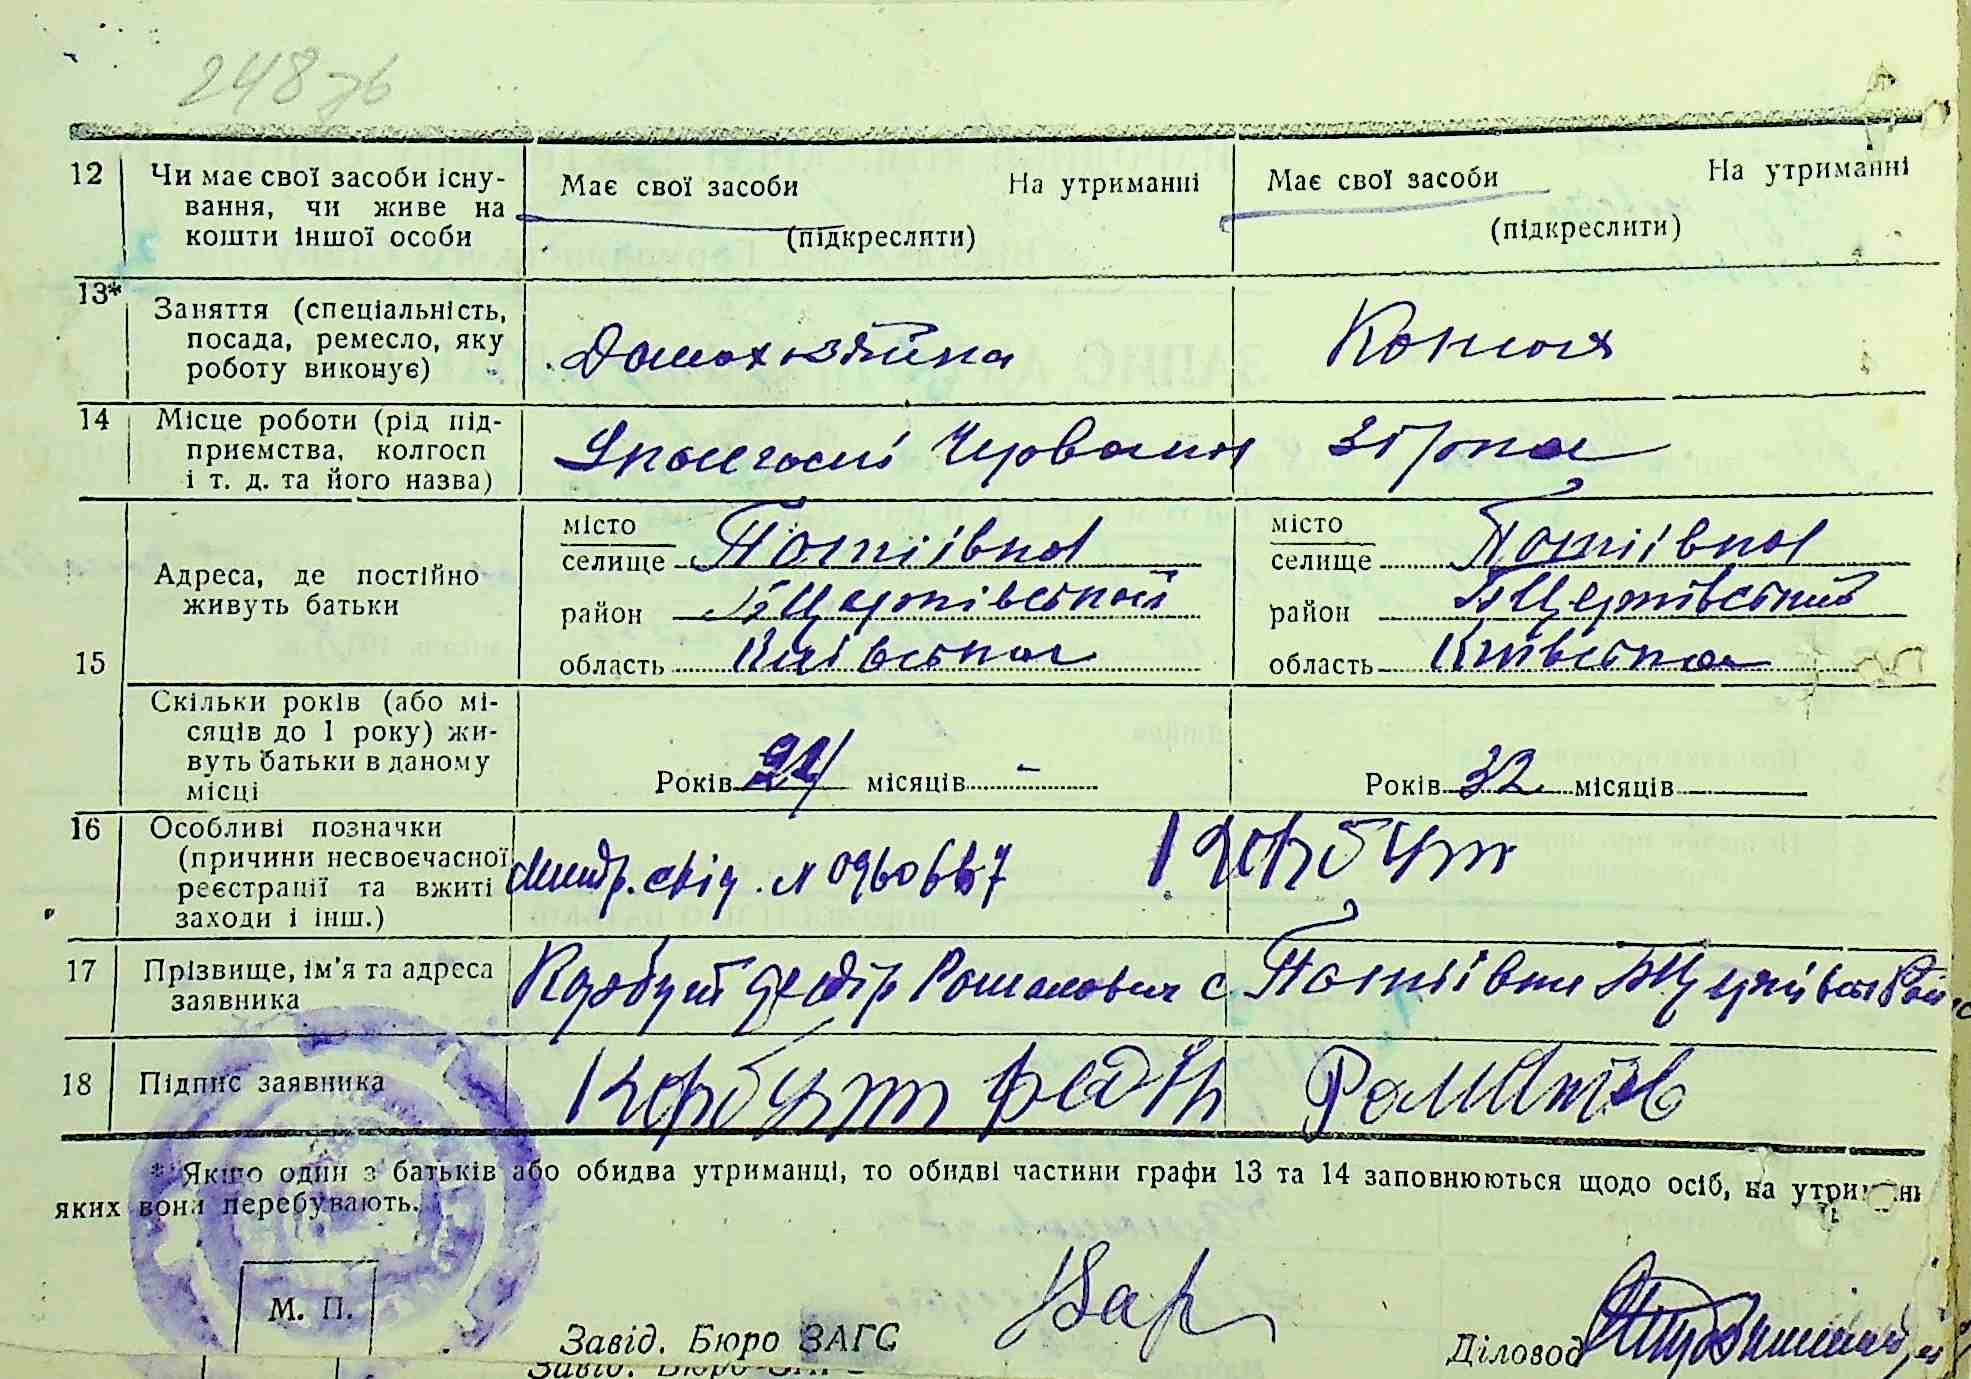 248 зв
12 Чи має свої засоби існу- Має свої засоби На утриманні Має свої засоби На утриманні
вання, чи живе на
кошти іншої особи (підкреслити) (підкреслити)
13* Заняття (спеціальність,
посада, ремесло, яку Домохозяйка Конюх
роботу виконує)
14 Місце роботи (рід під-
приємства, колгосп Червона Зірка
і т. д. та його назва)
15 Адреса, де постійно
живуть батьки
місто місто
селище Потіївка селище Потіївка
район БЦерківський район БЦерківський
область Київська область Київська
Скільки років (або мі-
сяців до 1 року) жи-
вуть батьки в даному Років місяців – Років 32 місяців
місці
16 Особливі позначки
(причини несвоєчасної
реєстрації та вжиті свід. № Корбут
заходи і інш.)
17 Прізвище, ім'я та адреса Корбут Федір Романович с Потіївка БЦерківськ
заявника
18 Підпис заявника Корбут Федір
* Якщо один з батьків або обидва утриманці, то обидві частини графи 13 та 14 заповнюються щодо осіб, на
яких вони перебувають.
М. П.
Завід. Бюро ЗАГС Діловод
Завід. Бюро